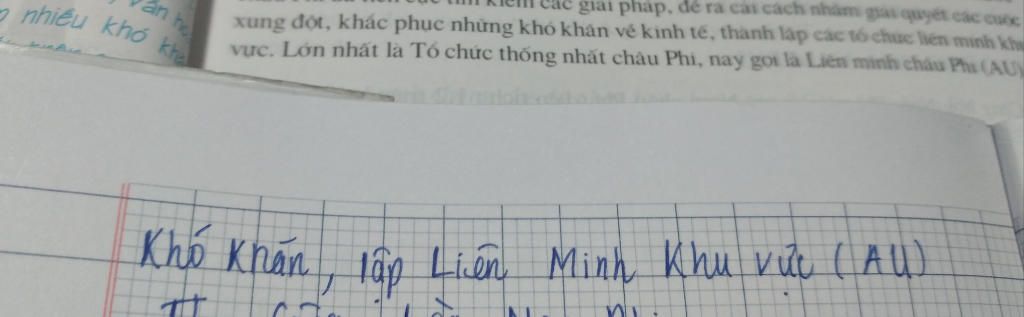 văn
nhiều khó
kiếm các giải pháp, đề ra cải cách nhằm giải quyết các cuộc
xung đột, khắc phục những khó khăn về kinh tế, thành lập các tổ chức liên minh
vực. Lớn nhất là Tổ chức thống nhất châu Phi, nay gọi là Liên minh châu Phi (AU)
Khó Khăn, lập Liên Minh Khu vực (AU)